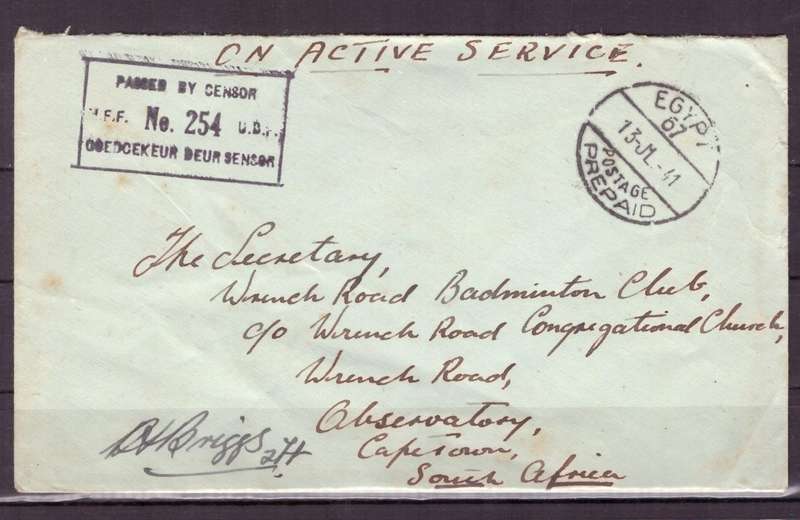 ON ACTIVE SERVICE.
PASSED BY CENSOR
U.F.F. No. 254 U.D.F.
GOEDGEKEUR DEUR SENSOR
EGYPT
67
13-JL.-41
POSTAGE
PREPAID
The Secretary,
Wrench Road Badminton Club,
c/o Wrench Road Congregational Church,
Wrench Road,
Observatory,
Capetown,
South Africa
Briggs